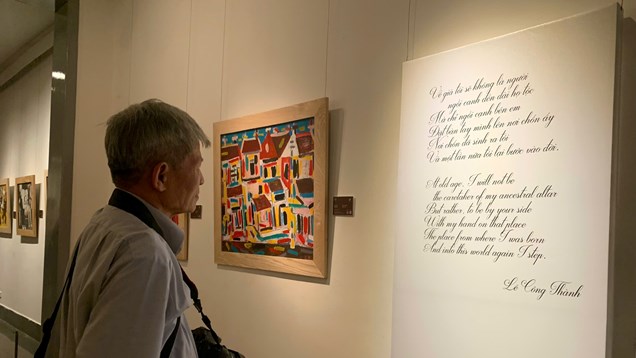 Về già tôi sẽ không là người
ngồi canh đền đài họ tộc
Mà chỉ ngồi canh bên em
Đặt bàn tay mình lên nơi chốn ấy
Nơi chốn đã sinh ra tôi
Và một lần nữa tôi lại bước vào đời.
At old age, I will not be
the caretaker of my ancestral altar
But rather, to be by your side
With my hand on that place
The place from where I was born
And into this world again I step.
Lê Công Thành